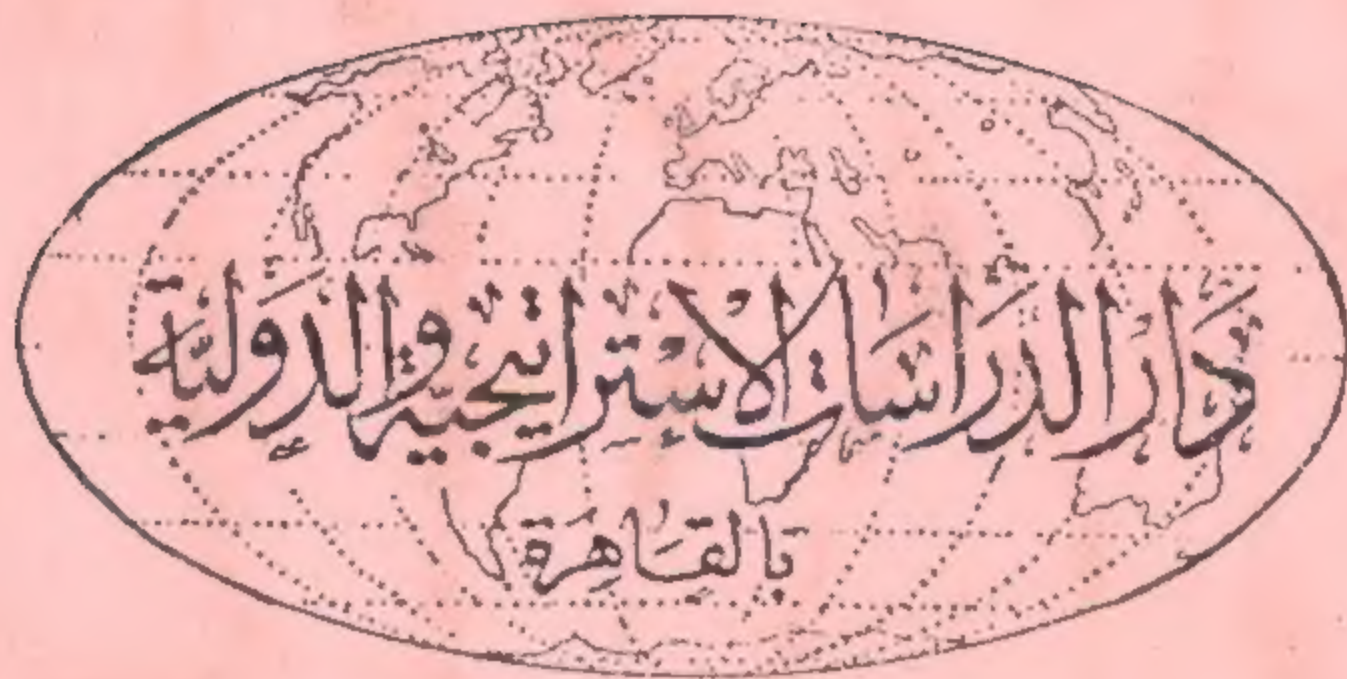 دَار الدِّرَاسَات الاسْتِرَاتيجيَّة وَالدَّوْليَّة
بِالقَاهِرَة